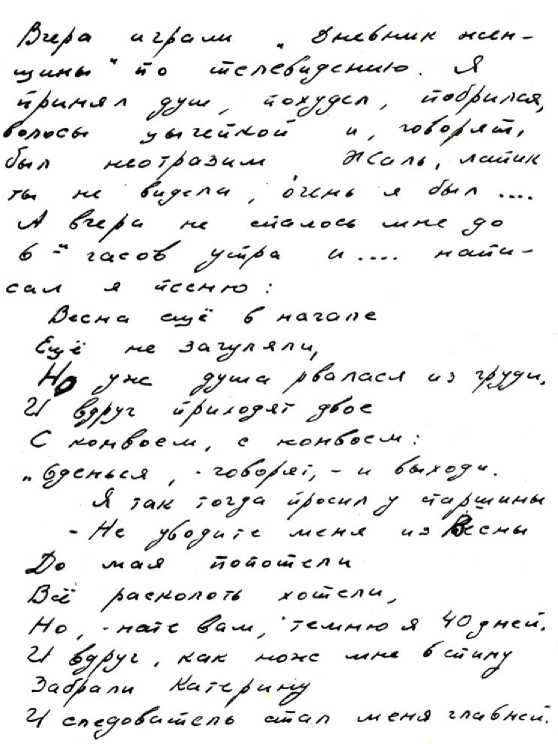 Вчера играли „Дневник жен-
щины" по телевидению. Я
принял душ, похудел, побрился,
волосы цычейкой и, говорят,
был неотразим Жаль, лапик
ты не видела, очень я был ....
А вчера не спалось мне до
6-" часов утра и .... напи-
сал я песню:
Весна ещё в начале
Ещё не загуляли,
Но уж душа рвалася из груди,
И вдруг приходят двое
С конвоем, с конвоем:
„Оденься, - говорят, - и выходи.
Я так тогда просил у старшины
- Не уводите меня из Весны
До мая попотели
Всё расколоть хотели,
Но, - нате вам, темню я 40 дней.
И вдруг, как нож мне в спину
Забрали Катерину
И следователь стал меня главней.